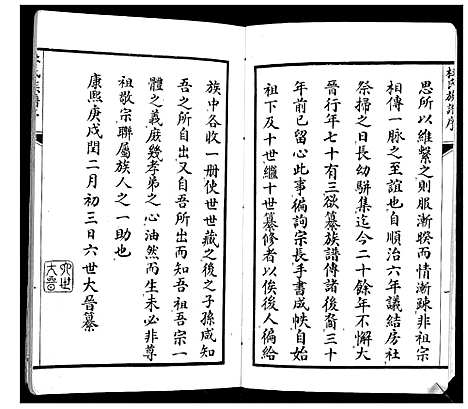 杜氏族譜序
思所以維繫之則服漸睽而情漸踈非祖宗
相傳一脉之至誼也自順治六年議結房社
祭掃之日長幼駢集迄今二十餘年不解大
晉行年七十有三欲纂族譜傳諸後裔三十
年前已留心此事徧詢宗長手書成帙自始
祖下及十世繼十世纂修者以俟後人徧給
族中各收一冊使世世藏之後之子孫咸知
吾之所自出又自吾所出而知吾祖吾宗一
體之義庶幾孝弟之心油然而生未必非尊
祖敬宗聯屬族人之一助也
康熙庚戌閏二月初三日六世大晉纂
六世
大晉